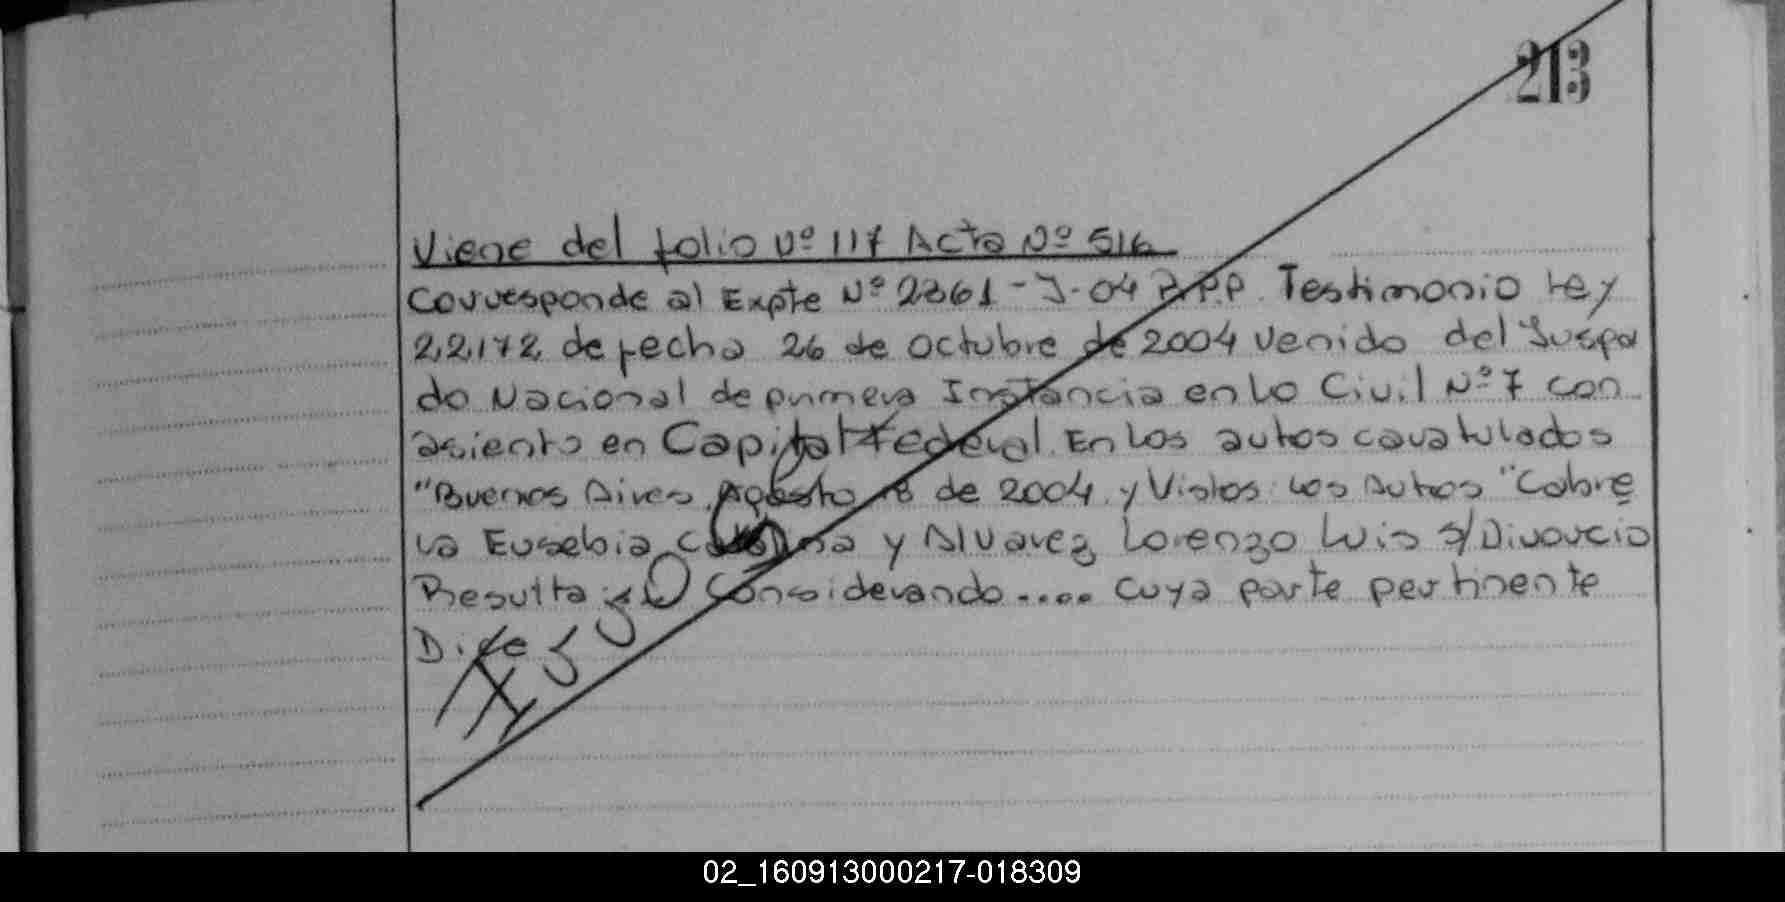 213
Viene del folio Nº 117 Acta Nº 516
Corresponde al Expte Nº 2361-J-04 R.P.P. Testimonio Ley
22172 de fecha 26 de octubre de 2004 venido del Jusga
do Nacional de primera Instancia en lo Civil Nº 7 con
asiento en Capital Federal. En los autos caratulados
"Buenos Aires, Agosto 18 de 2004 y Vistos: los Autos "Cabre
la Eusebia y Alvarez Lorenzo Luis s/Divorcio
Resulta: Considerando.... cuya parte pertinente
Dice
02_160913000217-018309